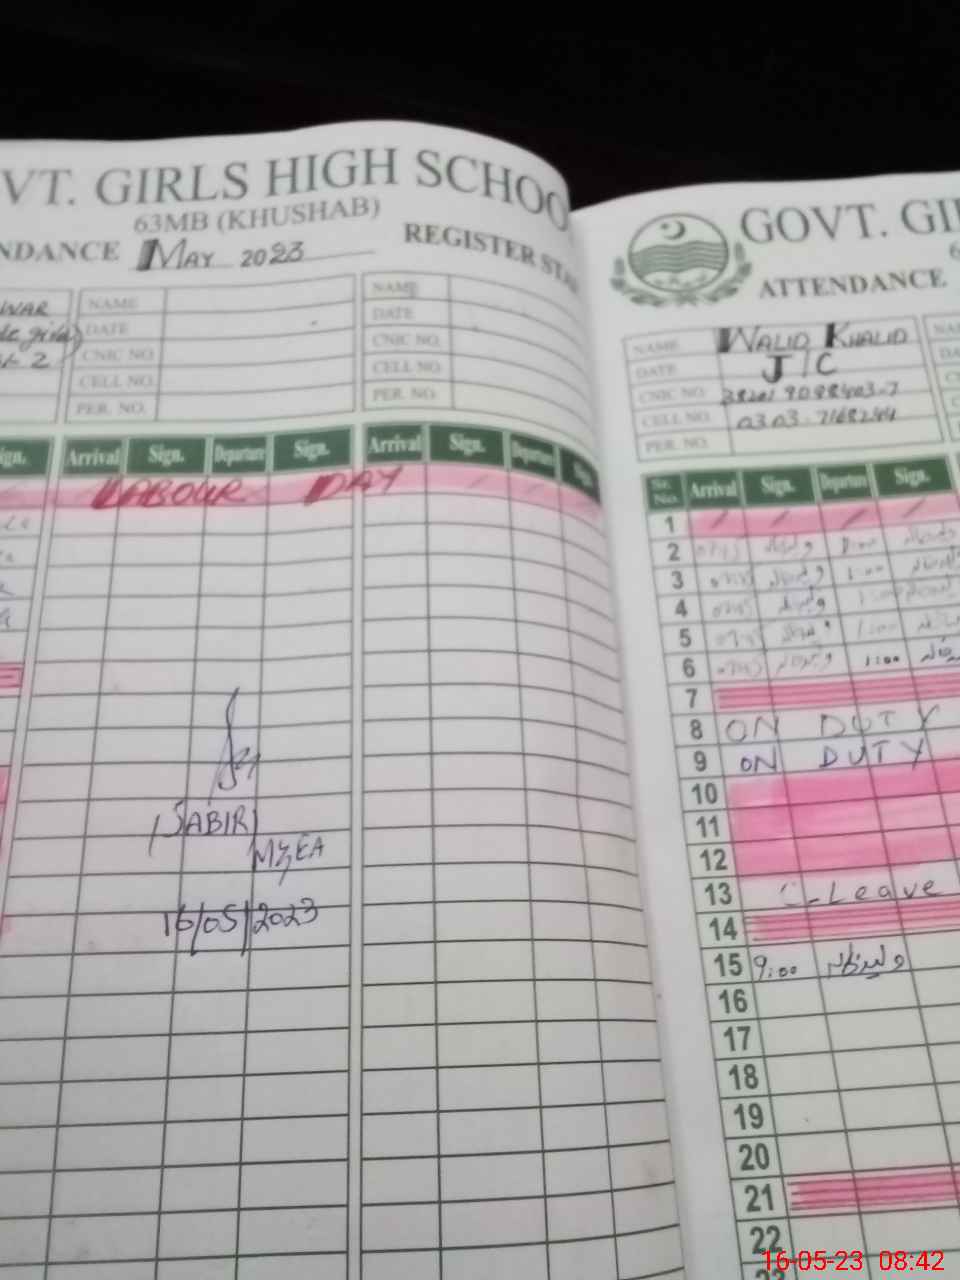 VT. GIRLS HIGH SCHOO
63MB (KHUSHAB)
NDANCE MAY 2023 REGISTER STA
WAR
2
NAME
DATE
CNIC NO.
CELL NO.
PER. NO.
NAME
DATE
CNIC NO.
CELL NO.
PER. NO.
ign. Arrival Sign. Departure Sign. Arrival Sign. Departure
LABOUR DAY
(SABIR)
MEA
16/05/2023
GOVT. GI
ATTENDANCE
NAME WALID KHALID
DATE J/C
CNIC NO.
CELL NO.
PER. NO.
Sr. No. Arrival Sign. Departure Sign.
1
2
3 1:00
4
5 1:00
6 ولید خالد 1:00
7
8 ON DUTY
9 ON DUTY
10
11
12
13 C-Leave
14
15 9:00 ولید خالد
16
17
18
19
20
21
22
23
16-05-23 08:42